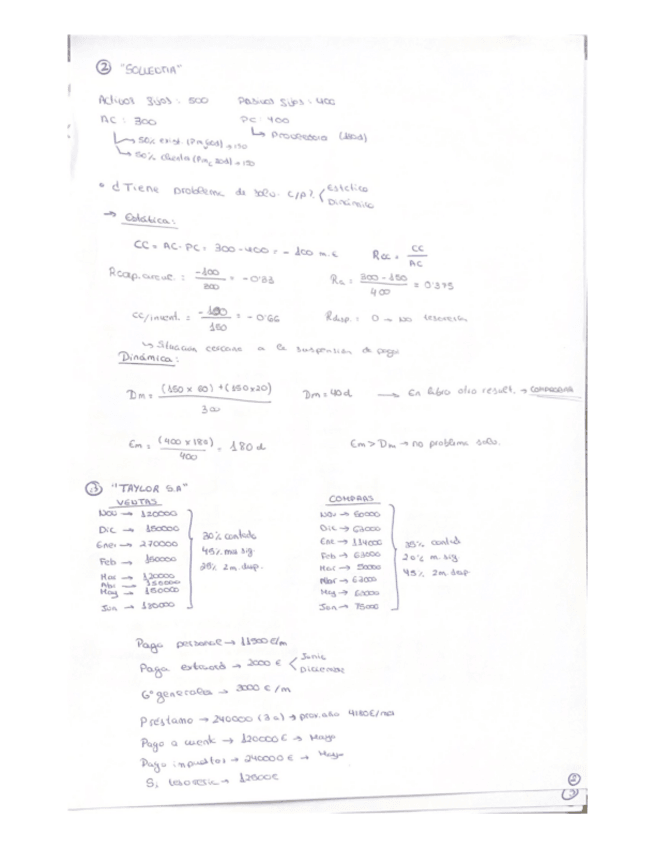 ② "SOLLECTIA"
Activos fijos: 500 Pasivos fijos: 400
AC: 300 PC: 400
↳ 50% exist. (Pm 60d) → 150 ↳ Proveedores (180d)
↳ 50% clientes (Pmc 20d) → 150
• ¿Tiene problema de solv. c/p? Estático
Dinámico
→ Estática:
CC = AC - PC = 300 - 400 = - 100 m.€ Rcc = CC / AC
Rcap. circul. : -100 / 300 = -0'33 Rc : 300 - 150 / 400 = 0'375
CC/invent. = -100 / 150 = -0'66 Rdisp. : 0 → No tesorería
↳ Situación cercana a la suspensión de pagos
Dinámica:
Dm = (150 x 60) + (150x20) / 300 Dm = 40d → En libro otro result. → COMPROBAR
Em = (400 x 180) / 400 = 180 d Em > Dm → no problema solv.
"TAYLOR S.A"
VENTAS COMPRAS
Nov → 120000 Nov → 60000
Dic → 150000 Dic → 63000
Ener → 270000 Ene → 114000
30% contado 35% contado
Feb → 150000 Feb → 63000
45% mes sig. 20% m. sig
Mar → 120000 Mar → 50000
25% 2m. desp. 45% 2m desp.
Abr → 150000 Abr → 63000
May → 150000 May → 60000
Jun → 180000 Jun → 75000
Pago personal → 11900€/m
Paga extraord → 2000 € Junio
Diciembre
Gº generales → 3000 €/m
Préstamo → 240000 (3a) → prox. año 4180€/mes
Pago a cuenta → 120000€ → Mayo
Pago impuestos → 240000€ → Mayo
Si tesorería → 12500€
②
③